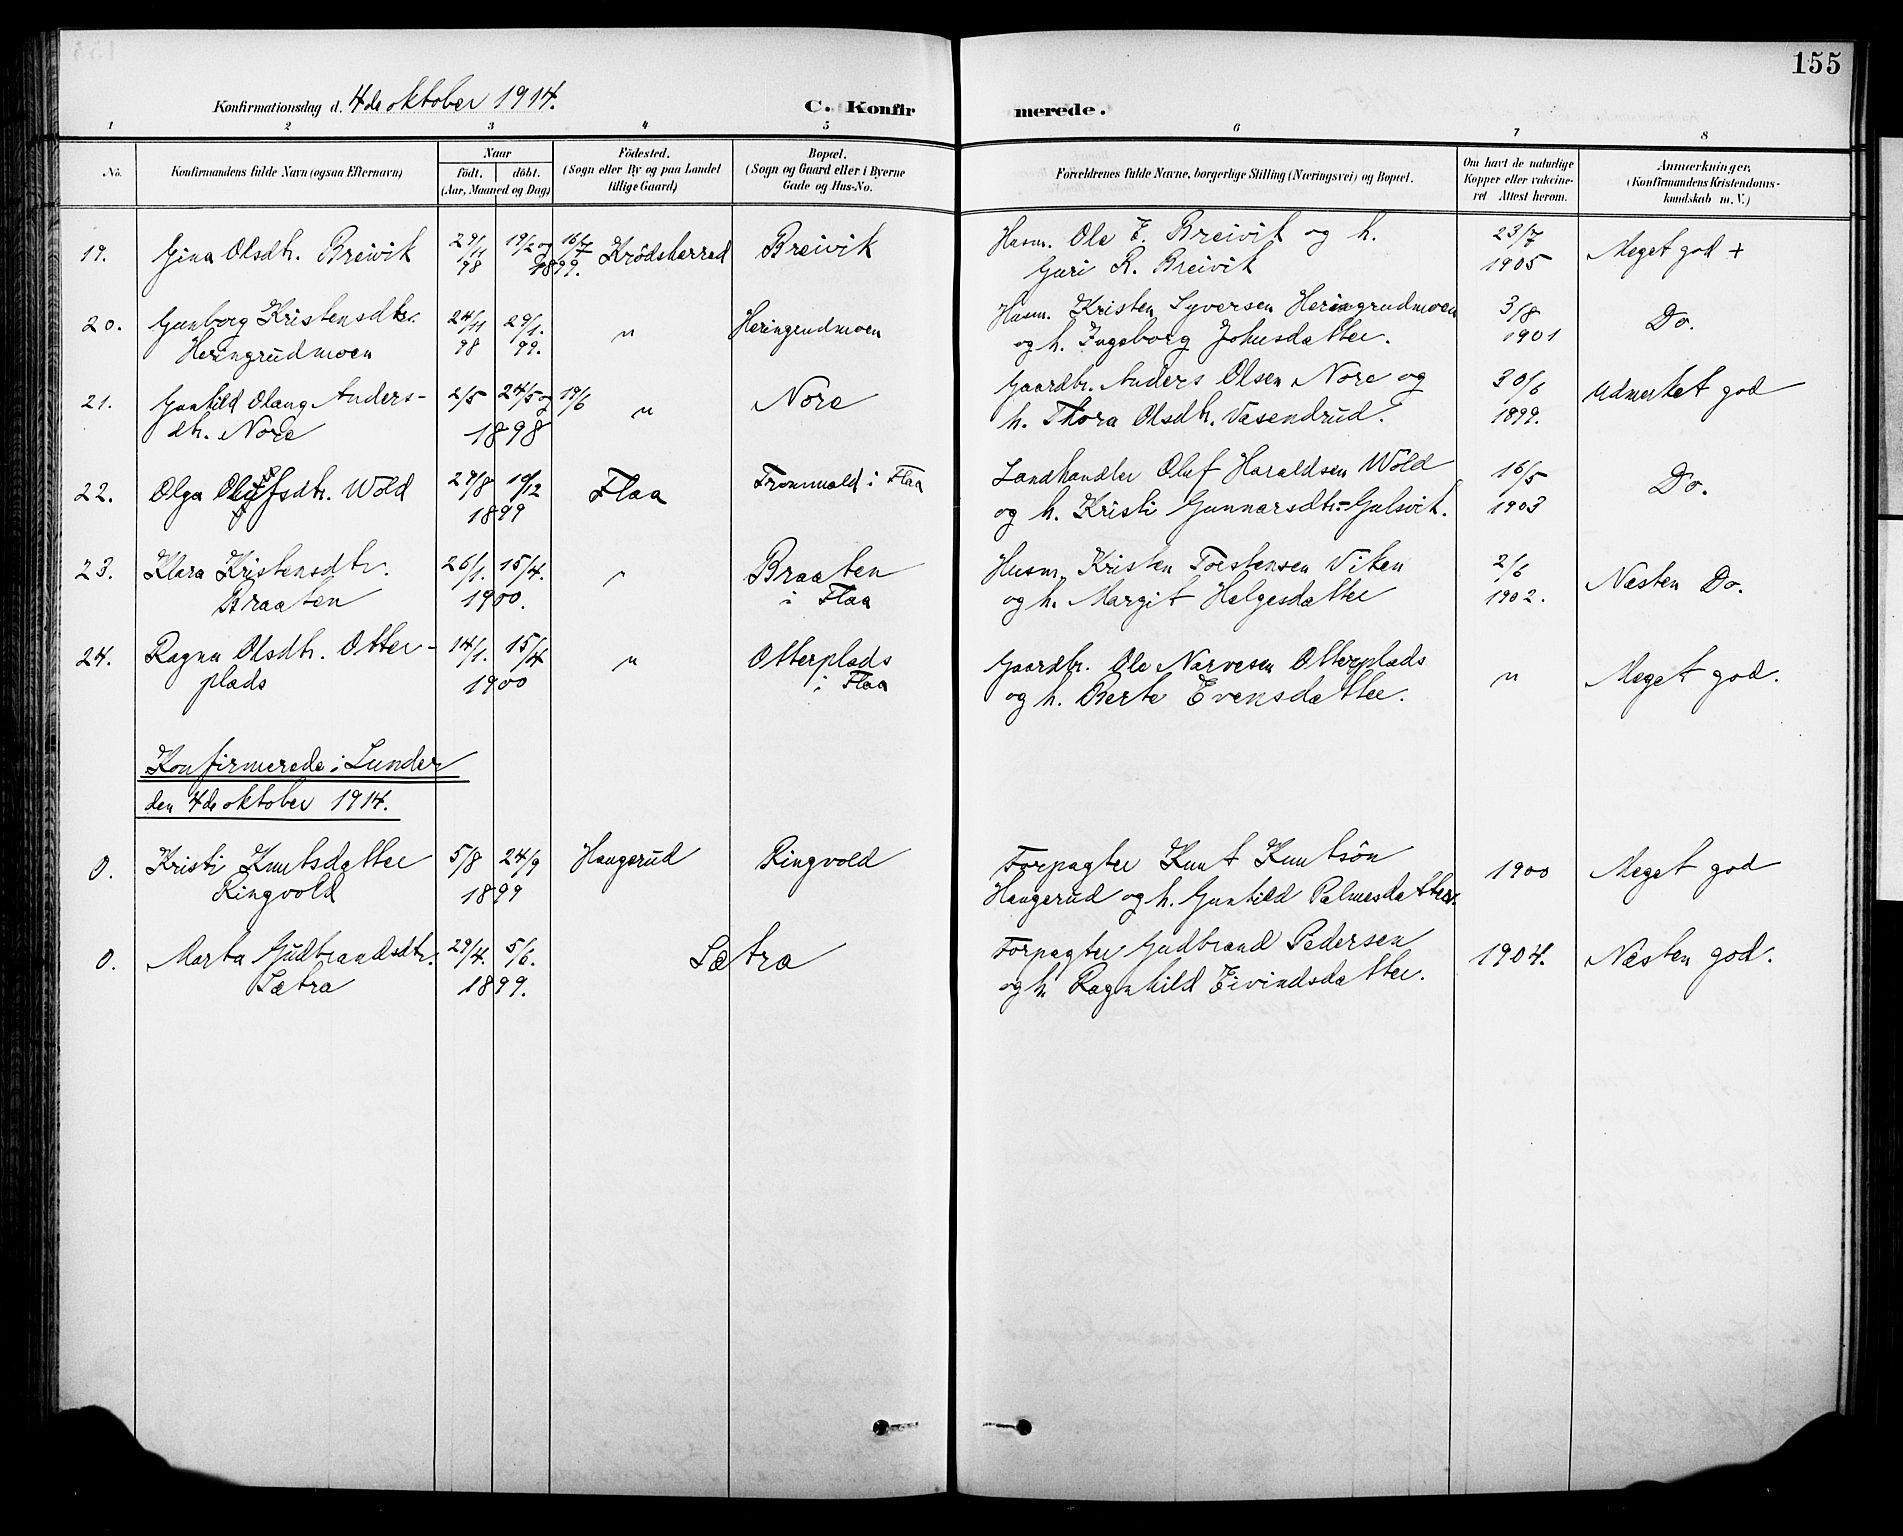 155
Konfirmationsdag d. 4de oktober 1914.
C. Konfirmerede.
1 2 3 4 5 6 7 8
No.
Konfirmandens fulde Navn (ogsaa Efternavn)
Naar
födt. döbt.
(Aar, Maaned og Dag)
Födested.
(Sogn eller By og paa Landet
tillige Gaard)
Bopæl.
(Sogn og Gaard eller i Byerne
Gade og Hus-No.
Forældrenes fulde Navne, borgerlige Stilling (Næringsvei) og Bopæl.
Om havt de naturlige
Kopper eller vakcine-
ret Attest herom.
Anmærkninger.
(Konfirmandens Kristendoms-
kundskab m. V.)
19. Gina Olsdtr. Breivik 29/11 98 19/2 og 16/7 1899. Krödsherred Breivik Husm. Ole E. Breivik og h.
Guri R. Breivik 23/7 1905 Meget god +
20. Gunborg Kristensdtr. 24/11 98 29/1. 99. " Heringrudmoen Husm. Kristen Syversen Heringrudmoen 3/8
Heringrudmoen og h. Ingeborg Johusdatter. 1901 Do.
21. Gunhild Olaug Anders- 2/5 24/5 og 19/6 " Nore Gaardbr. Anders Olsen Nore og 30/6 Udmerket god
dtr. Nore 1898 h. Thora Olsdtr. Vasendrud. 1899.
22. Olga Olufsdtr. Wold 29/8 19/12 Flaa Fromvald i Flaa Landhandler Oluf Haraldsen Wold 16/5 Do.
1899 og h. Kristi Gunnarsdtr. Gulsvik. 1903
23. Klara Kristensdtr. 26/1. 15/4. " Braaten Husm. Kristen Torstensen Viken 2/6 Næsten Do.
Braaten 1900. i Flaa og h. Margit Helgesdatter 1902.
24. Ragna Olsdtr. Otter- 14/1. 15/4 " Otterplads Gaardbr. Ole Narvesen Otterplads " Meget god.
plads 1900 i Flaa og h. Berte Evensdatter.
Konfirmerede i Lunder
den 4de oktober 1914.
0. Kristi Knutsdatter 5/8 24/9 Haugerud Ringvold Forpagter Knut Knutsön 1900 Meget god
Ringvold 1899 Haugerud og h. Gunhild Palmesdatter.
0. Marta Gudbrandsdtr. 29/4. 5/6. Sætra Forpagter Gudbrand Pedersen 1904. Næsten god.
Sætra 1899. og h. Ragnhild Eivindsdatter.